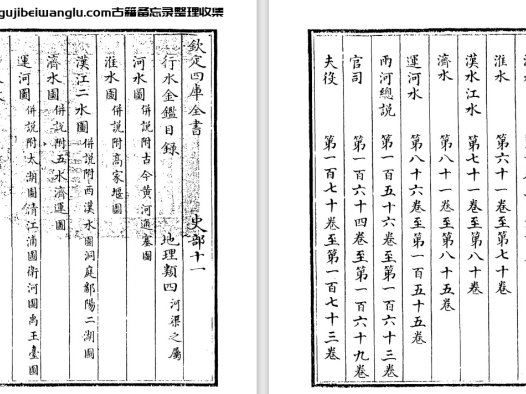 gujibeiwanglu.com古籍备忘录整理收集
欽定四庫全書 史部十一
行水金鑑目錄 地理類四 河渠之屬
河水圖 併説附古今黄河通塞圖
淮水圖 併説附高家堰圖
漢江二水圖 併説附西漢水圖洞庭鄱陽二湖圖
濟水圖 併説附五水濟運圖
運河圖 併説附太湖圖清江浦圖衞河圖禹王臺圖
淮水 第六十一卷至第七十卷
漢水江水 第七十一卷至第八十卷
濟水 第八十一卷至第八十五卷
運河水 第八十六卷至第一百五十五卷
兩河總説 第一百五十六卷至第一百六十三卷
官司 第一百六十四卷至第一百六十九卷
夫役 第一百七十卷至第一百七十三卷